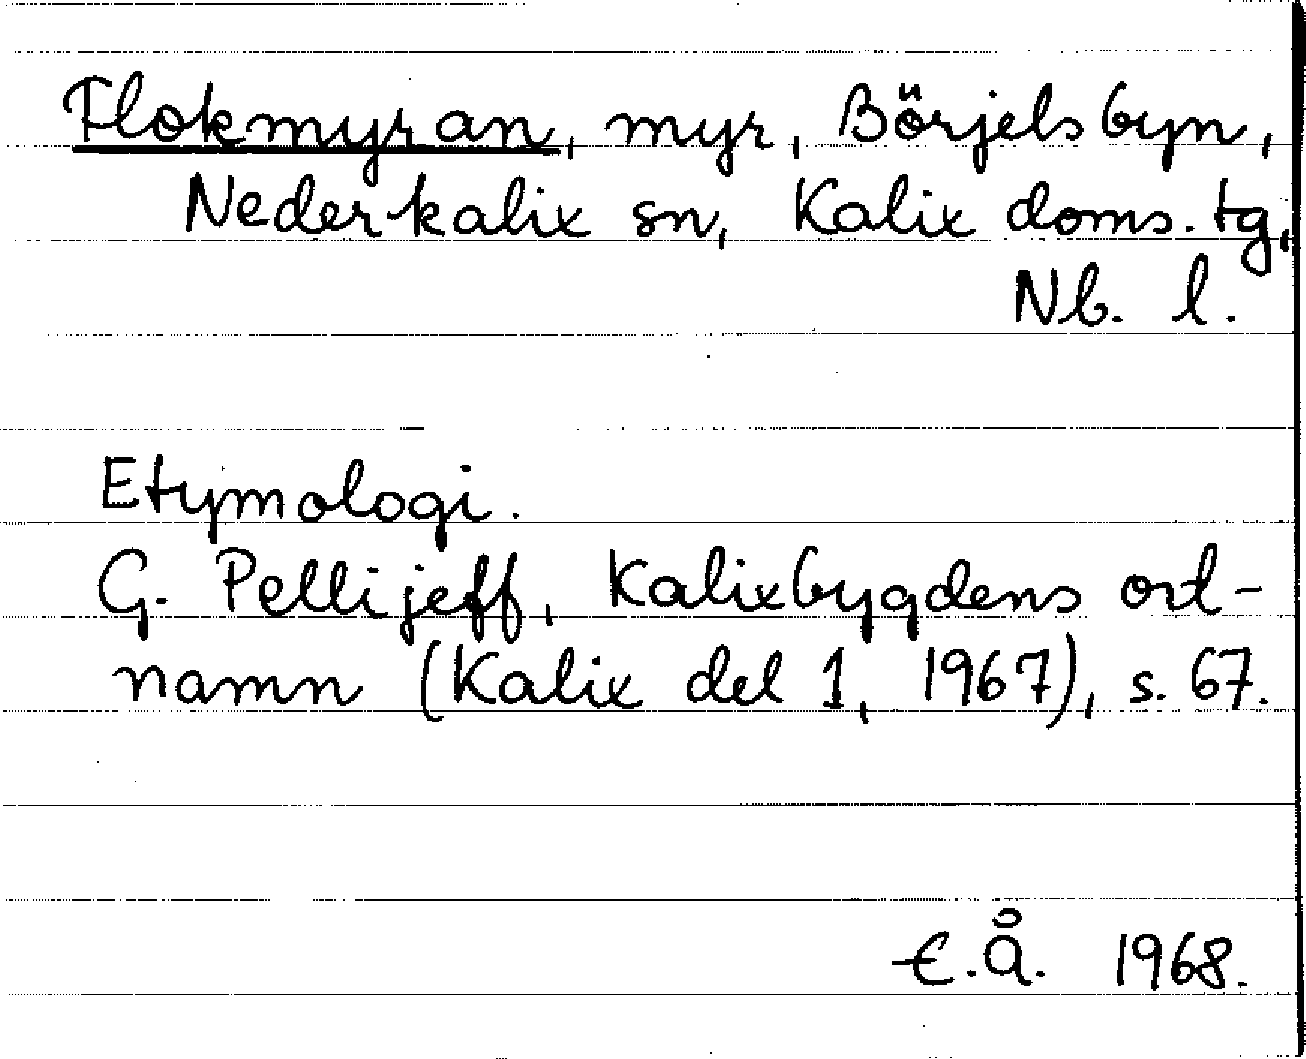 Flokmyran, myr, Börjelsbyn,
Nederkalix sn, Kalix doms. tg,
Nb. l.
Etymologi.
G. Pellijeff, Kalixbygdens ort-
namn (Kalix del 1, 1967), s. 67.
E.Å. 1968.